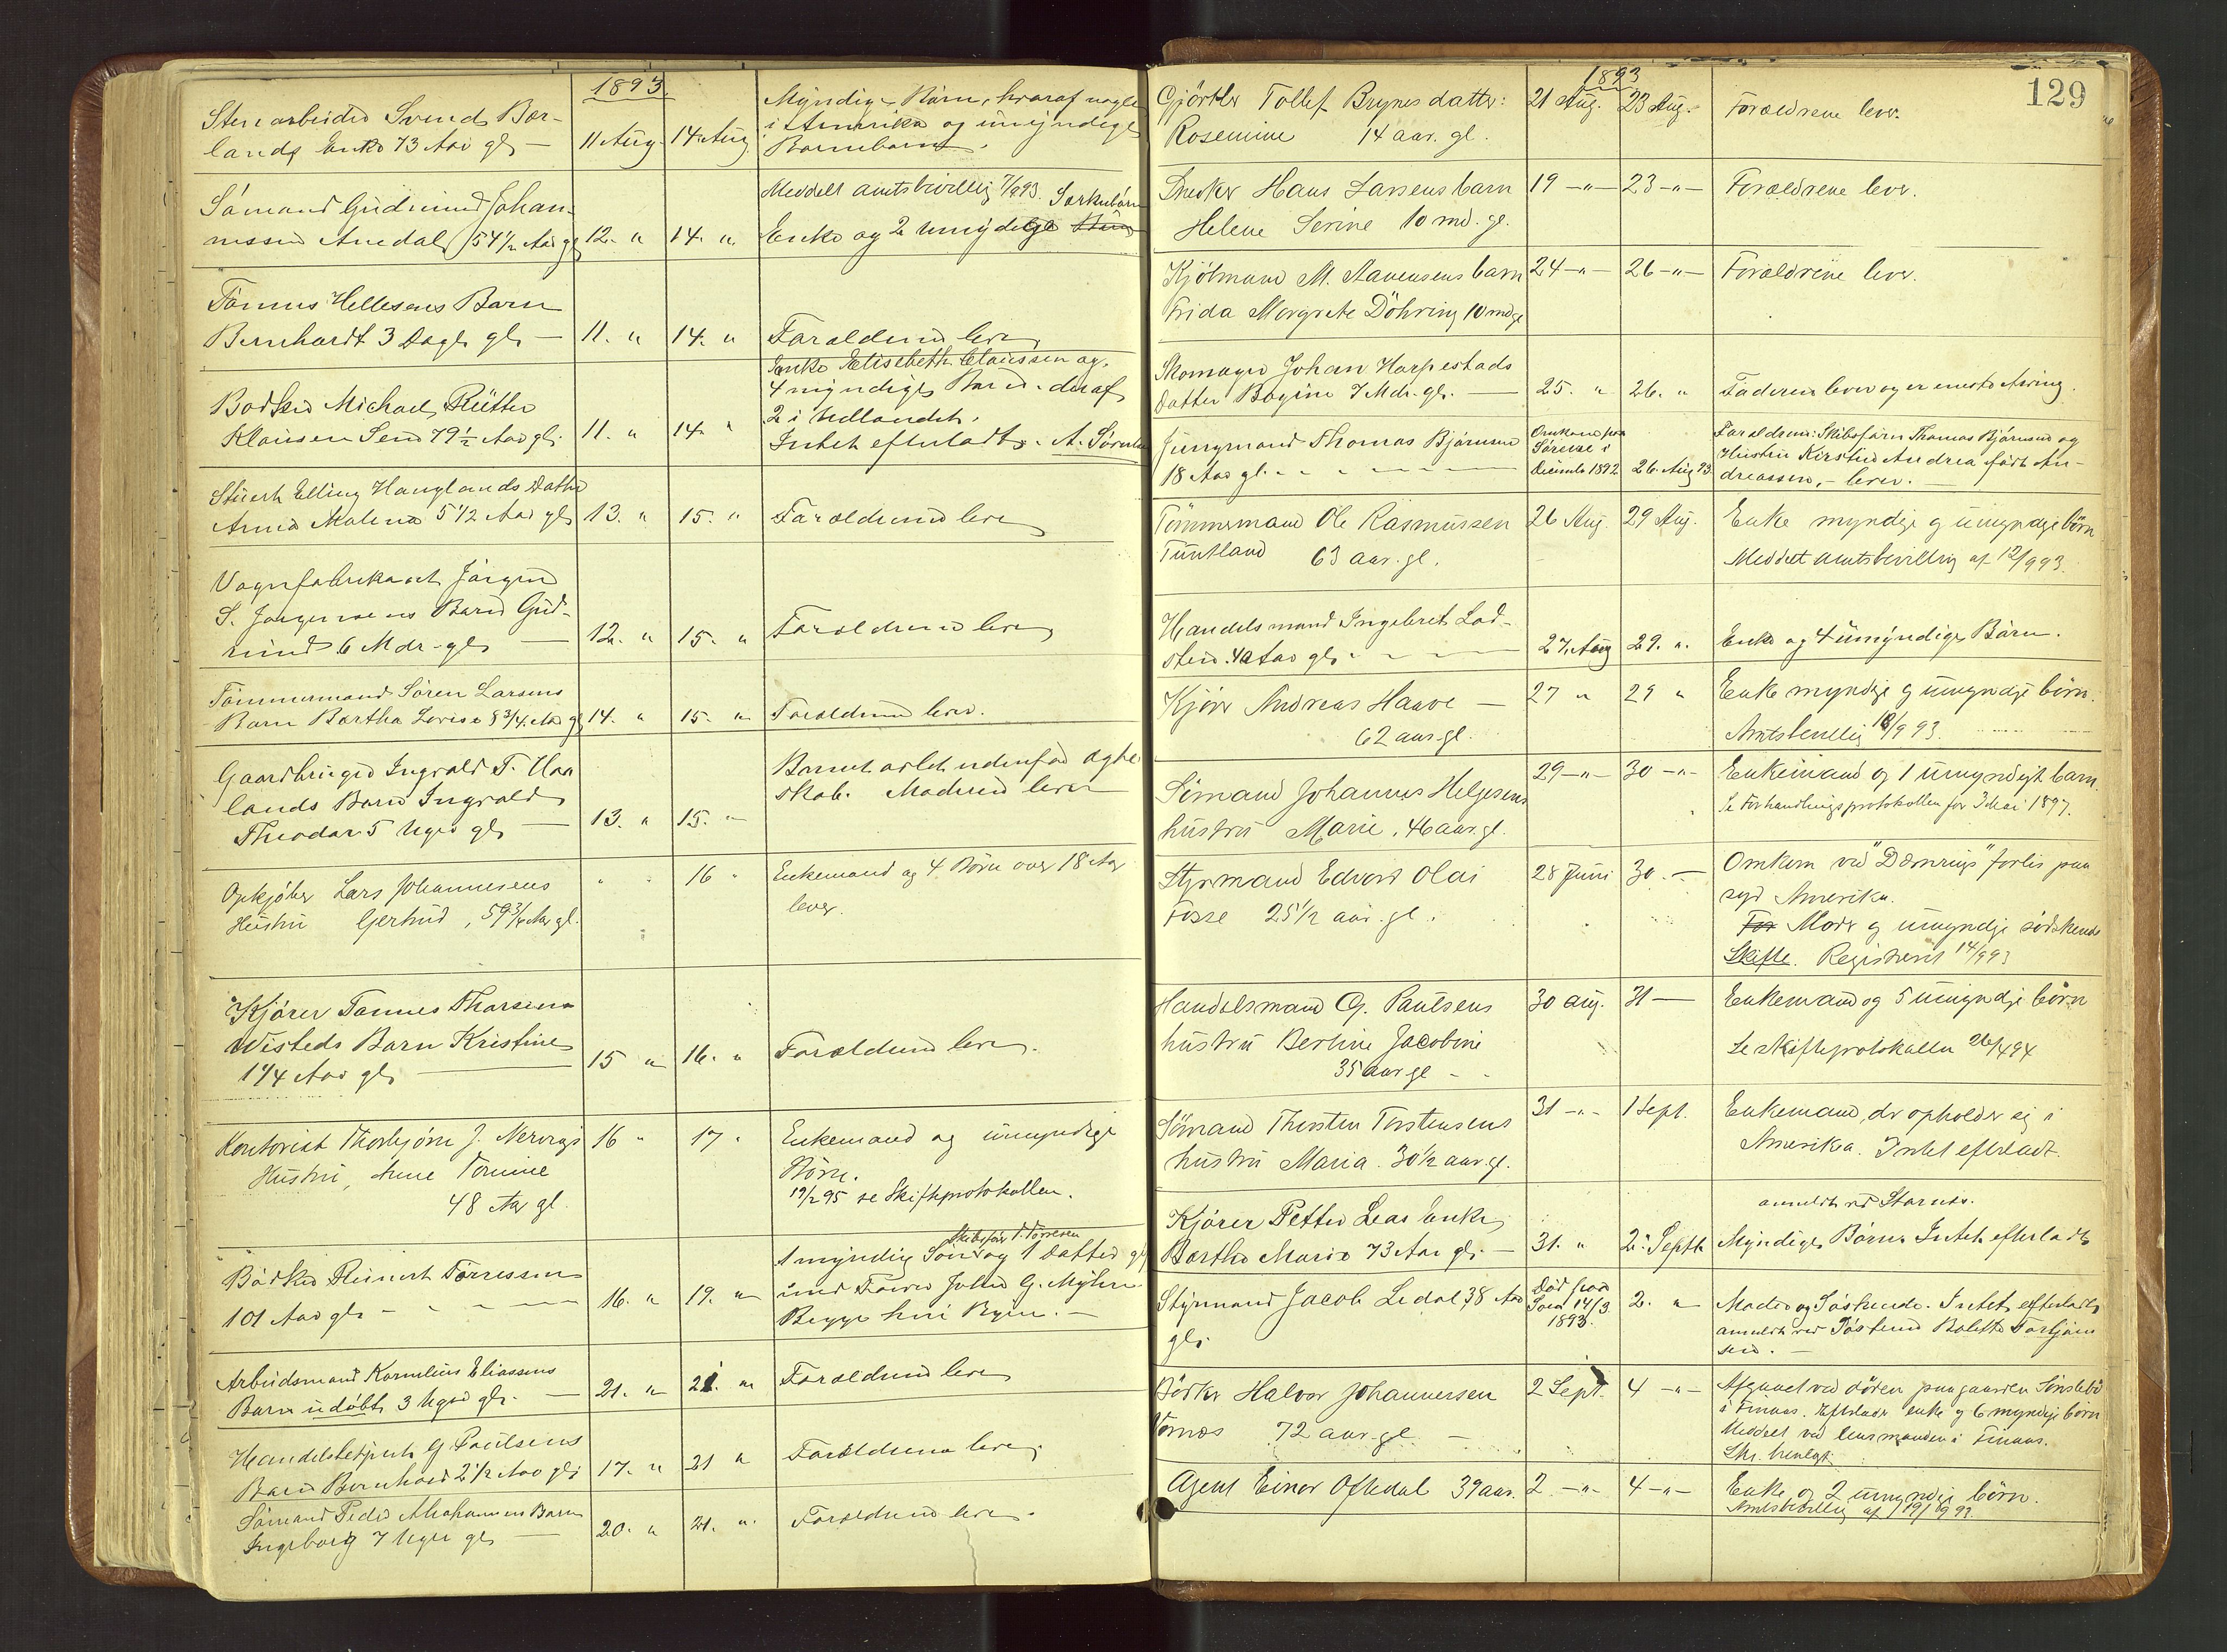 1893
Stenarbeider Svend Bor-
lands Enke 73 Aar gl. — 11 Aug 14. Aug
Myndige Børn, hvoraf nogle
i Amerika og umyndige
Børnebørn.
Sømand Gudmund Johan-
nessen Anedal 54 1/2 Aar gl 12. " 14. "
Meddelt amtsbevillig 7/9 93. Særkulbørn
Enke og 2 umyndige Børn
Tønnes Hellesens Barn
Bernhardt 3 Dage gl. — 11. " 14. "
Forældrene lever
Bødker Michael Rütter
Klausen Senr 79 1/2 Aar gl. 11. " 14. "
Enke Elisebeth Claussen og
4 myndige Børn. deraf
2 i Udlandet.
Intet efterladt.
Stuert Elling Hauglands Datter
Anna Malene 5 1/2 Aar gl. 13. " 15. " Forældrene lever
Vognfabrikant Jørgen
S. Jørgensens Barn Gud-
mund 6 Mdr. gl. — 12. " 15. " Forældrene lever
Tømmermand Søren Larsens
Barn Bertha Lovise 8 3/4 Aar gl 14. " 15. " Forældrene lever.
Gaardbruger Ingvald T. Haa
lands Barn Ingvald
Theodor 5 Uger gl. — 13. " 15. "
Barnet avlet udenfor ægte
skab. Moderen lever
Opkjøber Lars Johannesens " " 16 "
Hustru Gjertrud, 59 3/4 Aar gl.
Enkemand og 4 Børn over 18 Aar
lever.
Kjører Tønnes Tharsens
Wisteds Barn Kristine
1 1/4 Aar gl. — 15 " 16. " Forældrene lever.
Kontorist Thorbjørn J. Nervigs 16 " 17 "
Hustru, Anne Tomine
48 Aar gl.
Enkemand og umyndige
Børn.
19/2 95 se Skifteprotokollen.
Bødker Reinert Tørressen
101 Aar gl. — 16. " 19. "
Skibsfører T. Tørresen
1 myndig Søn og 1 Datter gif
med Farver John G. Myhre
Begge her i Byen. —
Arbeidsmand Kornelius Eliassens
Barn udøbt 3 Uger gl. — 21. " 21. " Forældrene lever
Handelsbetjent G. Paulsens
Barn Bernhard 2 1/2 Aar gl. 17. " 21 " Forældrene lever
Sømand Peder Abrahamsens Barn
Ingeborg 7 Uger gl. — 20. " 21. " Forældrene lever.
129
1893
Gjørtler Tollef Brynes datter: 21 Aug. 23 Aug. Forældrene lever.
Rosemine 14 aar. gl.
Snedker Hans Larsens barn 19 —"— 23 —"— Forældrene lever.
Helene Serine 10 md. gl.
Kjøbmand M. Aanensens barn 24 —"— 26 —"— Forældrene lever.
Frida Margrete Döhring 10 md gl
Skomager Johan Harpestads
datter Bogine 7 Mdr. gl. — 25. " 26. " Faderen lever og er eneste Arving.
Jungmand Thomas Bjørnsen
18 Aar gl.
Omkom paa
Søreise i
December 1892 26. Aug 93.
Forældrene: Skibsfører Thomas Bjørnsen og
Hustru Kirstine Andrea født An-
dreassen, - lever.
Tømmermand Ole Rasmussen 26 Aug. 29 Aug. Enke myndige og umyndige børn
Tuntland 63 aar. gl.
Meddelt amtsbevilling af 12/9 93.
Handelsmand Ingebret Lod-
sten 40 Aar gl. 27. Aug 29. " Enke og 4 umyndige Børn.
Kjører Andreas Haave — 27 " 29 " Enke myndige og umyndige børn.
62 aar gl. Amtsbevillig 18/9 93.
Sømand Johannes Helgesens 29 —"— 30 —"— Enkemand og 1 umyndigt barn
hustru Marie, 46 aar. gl.
Se Forhandlingsprotokollen for 3 Mai 1897.
Styrmand Edvard Olai 28 Juni 30 —
Fosse 25 1/2 aar. gl.
Omkom ved "Dæmrings" forlis paa
syd Amerika.
For Moder og umyndige sødskende
Skifte. Registreret 14/9 93
Handelsmand G. Paulsens 30 aug. 31 — Enkemand og 5 umyndige børn
hustru Berline Jacobine
35 aar gl -
Se skifteprotokollen 26/4 94
Sømand Thorsten Torstensens 31 —"— 1 Sept.
hustru Maria. 30 1/2 aar. gl.
Enkemand, der opholder sig i
Amerika. Intet efterladt.
Kjører Petter Leas Enke
Berthe Marie 73 Aar gl. — 31. " 2. Septb
anmeldt ved
Myndige Børn. Intet efterladt
Styrmand Jacob Ledal, 38 Aar
gl.
Død paa
Søen 14/3
1893. 2. "
Moder og Søskende. Intet efterladt,
anmeldt ved Søsteren Bolette Torbjørn
sen. —
Bødker Halvor Johannersen 2 Sept. 4 —"—
Vornes 72 aar. gl. —
Afgaaet ved døden paa gaarden Sønstebø
i Finaas. Efterlader enke og 6 myndige børn
Meddelt ved lensmanden i Finaas.
Skr. henlagt
Agent Einar Oftedal 39 aar. 2 —"— 4 —"—
Enke og 2 umyndige børn.
Amtsbevillig af 19/9 93.